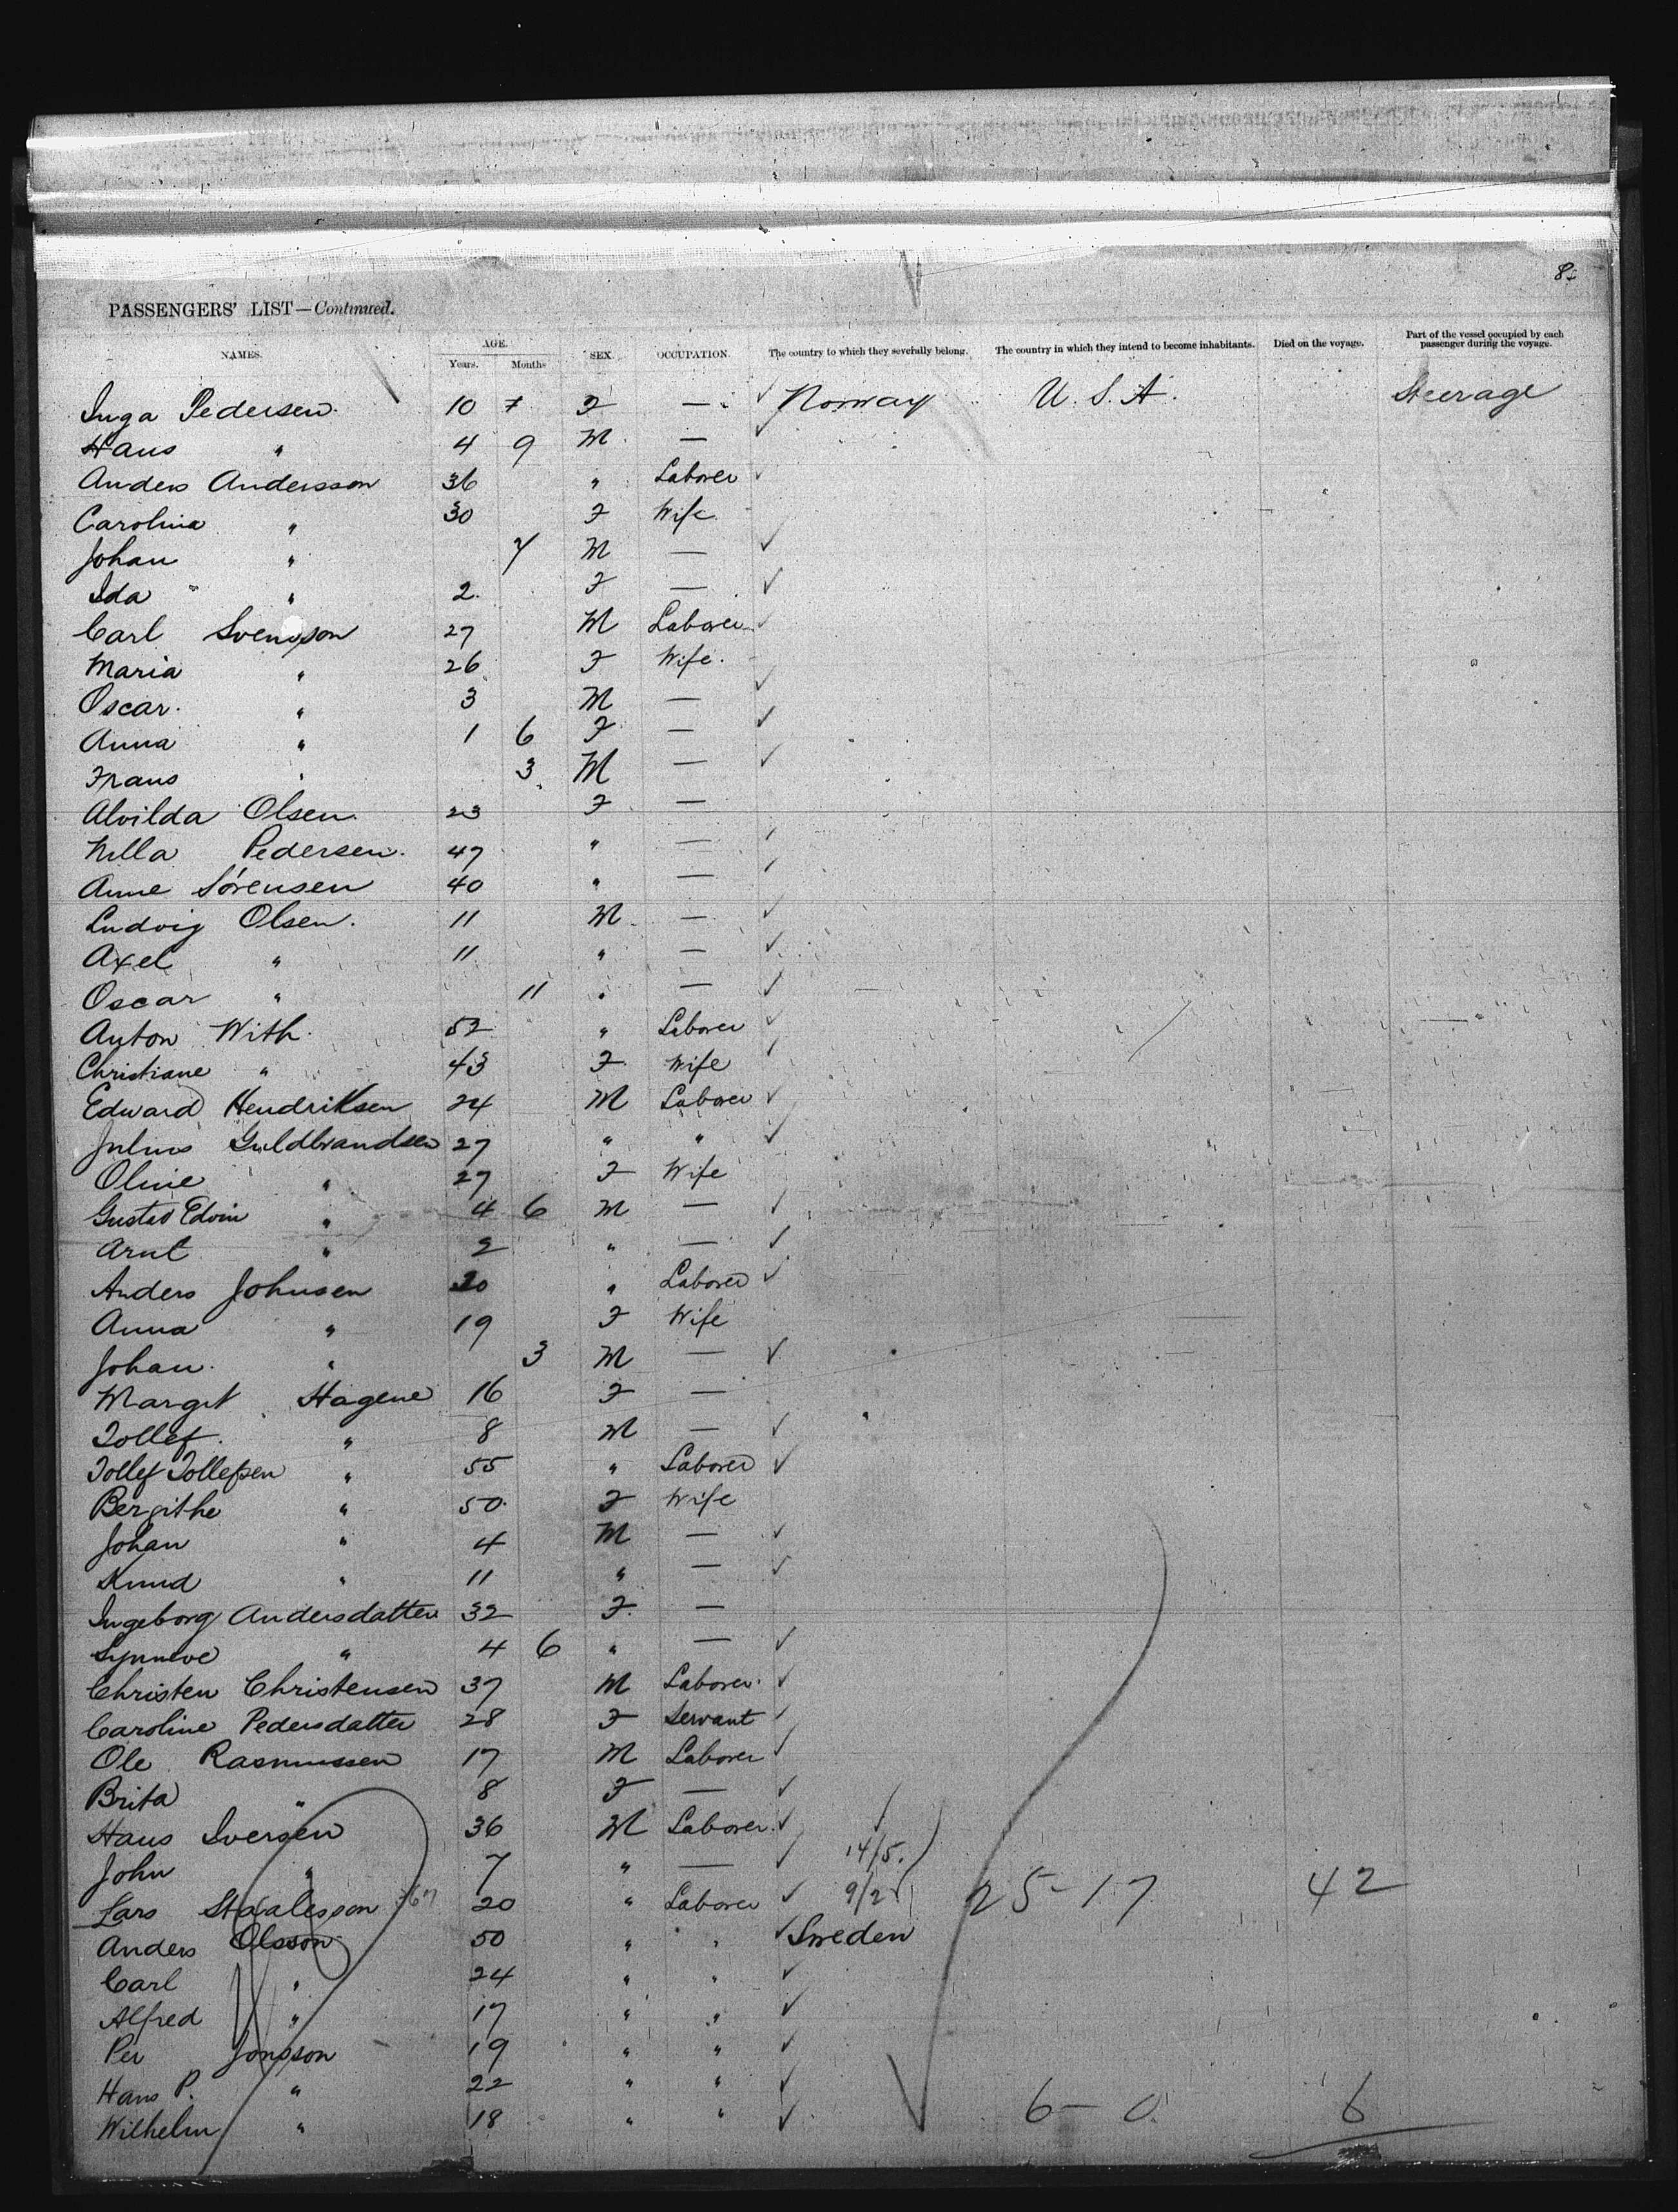 8
PASSENGERS' LIST—Continued.
NAMES. AGE. Years. Months SEX. OCCUPATION. The country to which they severally belong. The country in which they intend to become inhabitants. Died on the voyage. Part of the vessel occupied by each passenger during the voyage.
Inga Pedersen 10 7 F — Norway U.S.A. Steerage
Hans " 4 9 M —
Anders Andersson 36 " Laborer
Carolina " 30 F Wife
Johan " 7 M —
Ida " 2 F —
Carl Svensson 27 M Laborer
Maria " 26 F Wife
Oscar " 3 M —
Anna " 1 6 F —
Frans " 3 M —
Alvilda Olsen 23 F —
Nilla Pedersen 47 " —
Anne Sørensen 40 " —
Ludvig Olsen 11 M —
Axel " 11 " —
Oscar " 11 " —
Anton With 52 " Laborer
Christiane " 43 F Wife
Edward Hendriksen 24 M Laborer
Julius Guldbrandsen 27 " "
Oline " 27 F Wife
Gustav Edvin " 4 6 M —
Arnt " 2 " —
Anders Johnsen 20 " Laborer
Anna " 19 F Wife
Johan " 3 M —
Margit Hagene 16 F —
Tollef " 8 M —
Tollef Tollefsen " 55 " Laborer
Bergithe " 50 F Wife
Johan " 4 M —
Knud " 11 " —
Ingeborg Andersdatter 32 F —
Synneve " 4 6 " —
Christen Christensen 37 M Laborer
Caroline Pedersdatter 28 F Servant
Ole Rasmussen 17 M Laborer
Brita " 8 F —
Hans Iversen 36 M Laborer
John " 7 " — 14/5.
Lars 20 " Laborer 9/2 25-17 42
Anders Olsson 50 " " Sweden
Carl " 24 " "
Alfred " 17 " "
Per Jonsson 19 " "
Hans P. " 22 " "
Wilhelm " 18 " " 6-0 6